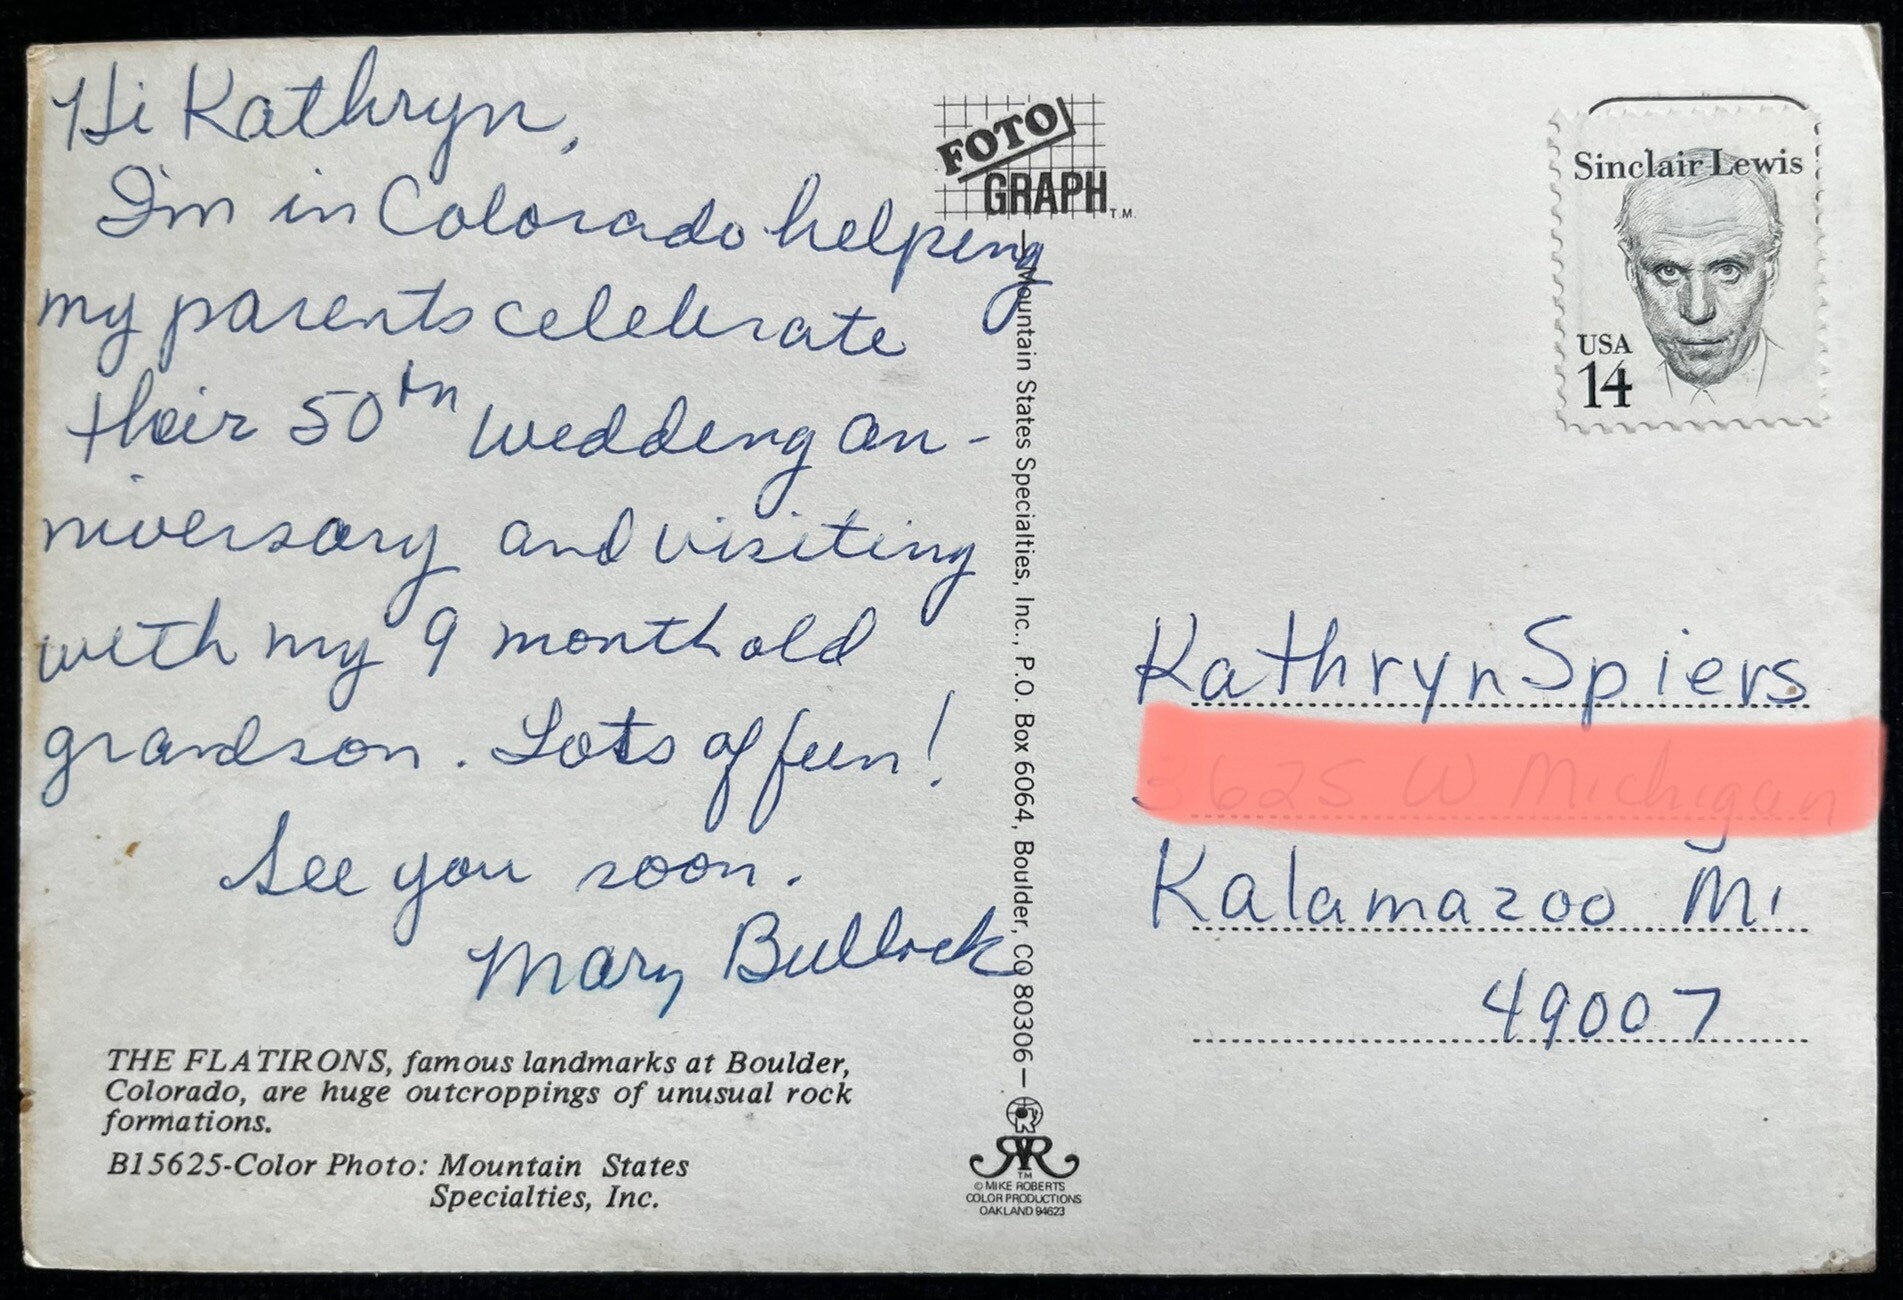 Hi Kathryn,
I'm in Colorado helping
my parents celebrate
their 50th wedding an-
niversary and visiting
with my 9 month old
grandson. Lots of fun!
See you soon.
Mary Bullock
THE FLATIRONS, famous landmarks at Boulder,
Colorado, are huge outcroppings of unusual rock
formations.
B15625-Color Photo: Mountain States
Specialties, Inc.
FOTO
GRAPH T.M.
— Mountain States Specialties, Inc., P.O. Box 6064, Boulder, CO 80306 —
R
TM
© MIKE ROBERTS
COLOR PRODUCTIONS
OAKLAND 94623
Sinclair Lewis
USA
14
Kathryn Spiers
Kalamazoo Mi
49007